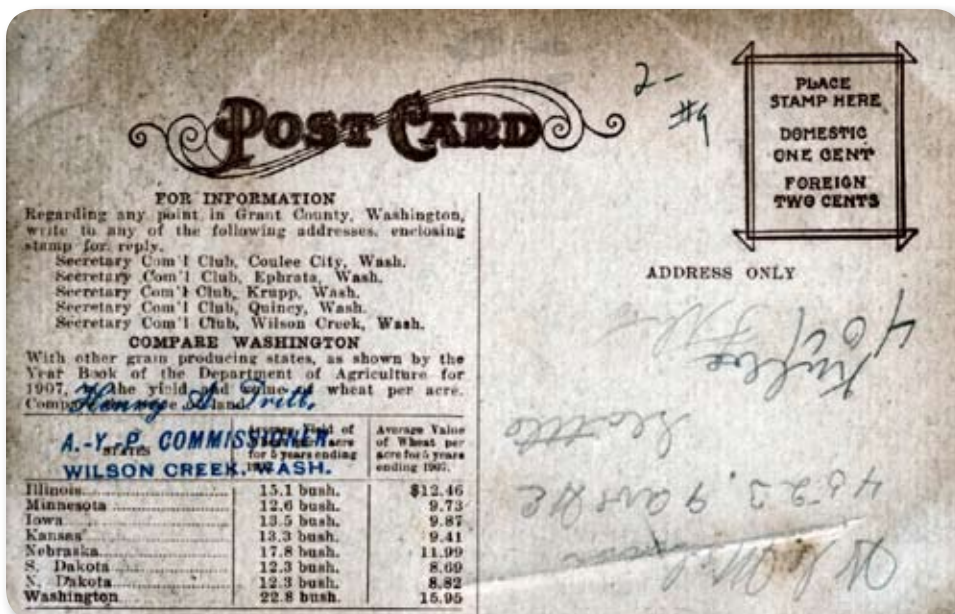 POST CARD
2-
#9
PLACE
STAMP HERE
DOMESTIC
ONE CENT
FOREIGN
TWO CENTS
FOR INFORMATION
Regarding any point in Grant County, Washington,
write to any of the following addresses, enclosing
stamp for reply.
Secretary Com'l Club, Coulee City, Wash.
Secretary Com'l Club, Ephrata, Wash.
Secretary Com'l Club, Krupp, Wash.
Secretary Com'l Club, Quincy, Wash.
Secretary Com'l Club, Wilson Creek, Wash.
COMPARE WASHINGTON
With other grain producing states, as shown by the
Year Book of the Department of Agriculture for
1907, the yield and value of wheat per acre.
Henry A. Tritt,
A.-Y.-P. COMMISSIONER
WILSON CREEK, WASH.
STATES
for 5 years ending
Average Value
of Wheat per
acre for 5 years
ending 1907.
Illinois 15.1 bush. $12.46
Minnesota 12.6 bush. 9.73
Iowa 13.5 bush. 9.87
Kansas 13.3 bush. 9.41
Nebraska 17.8 bush. 11.99
S. Dakota 12.3 bush. 8.69
N. Dakota 12.3 bush. 8.82
Washington 22.8 bush. 15.95
ADDRESS ONLY
Seattle